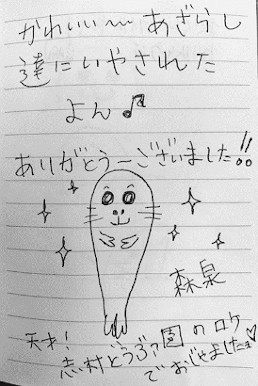 かわいい〜あざらし
達にいやされた
よん♪
ありがとう〜ございました!!
森泉
天才!
志村どうぶつ園のロケ
でおじゃましたょ♡